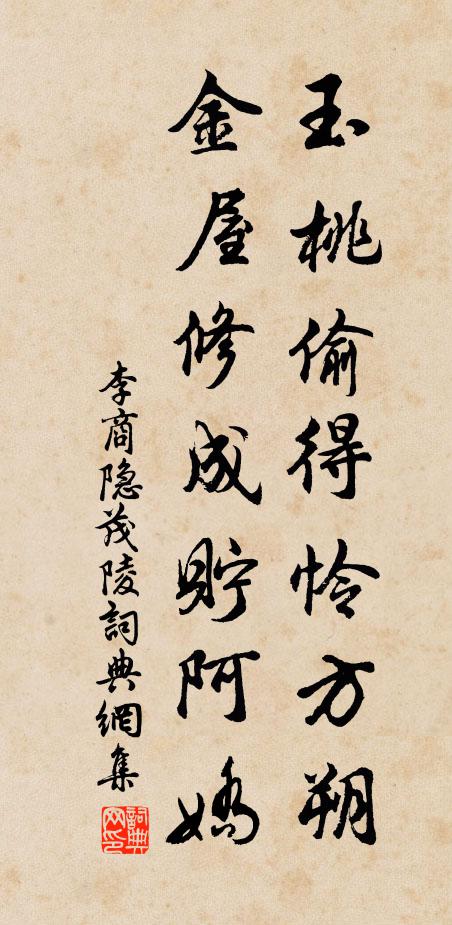 玉桃偷得怜方朔
金屋修成貯阿嬌
李商隐茂陵詞典網集
詞典网印